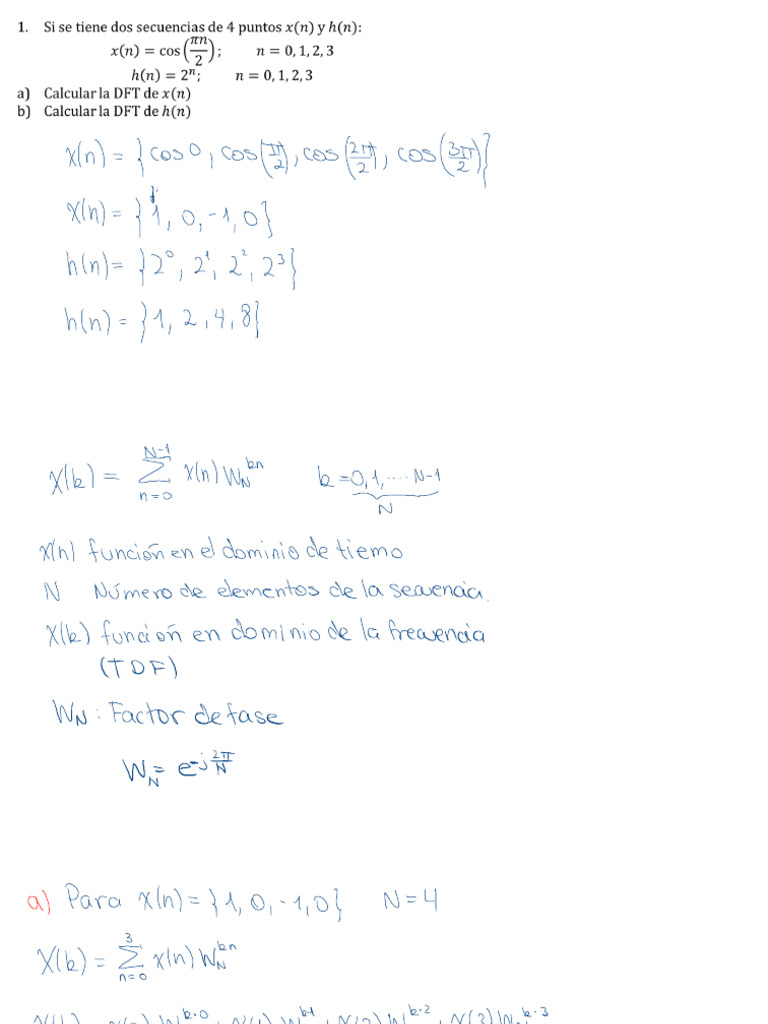 1. Si se tiene dos secuencias de 4 puntos x(n) y h(n):
x(n) = cos(πn/2); n = 0, 1, 2, 3
h(n) = 2^n; n = 0, 1, 2, 3
a) Calcular la DFT de x(n)
b) Calcular la DFT de h(n)
x(n) = {cos 0, cos(π/2), cos(2π/2), cos(3π/2)}
x(n) = {1, 0, -1, 0}
h(n) = {2^0, 2^1, 2^2, 2^3}
h(n) = {1, 2, 4, 8}
X(k) = Σ_{n=0}^{N-1} x(n) W_N^{kn} k = 0, 1, .... N-1
N
x(n) función en el dominio de tiemo
N Número de elementos de la secuencia.
X(k) función en dominio de la frecuencia
(TDF)
W_N : Factor de fase
W_N = e^{-j 2π/N}
a) Para x(n) = {1, 0, -1, 0} N = 4
X(k) = Σ_{n=0}^{3} x(n) W_N^{kn}